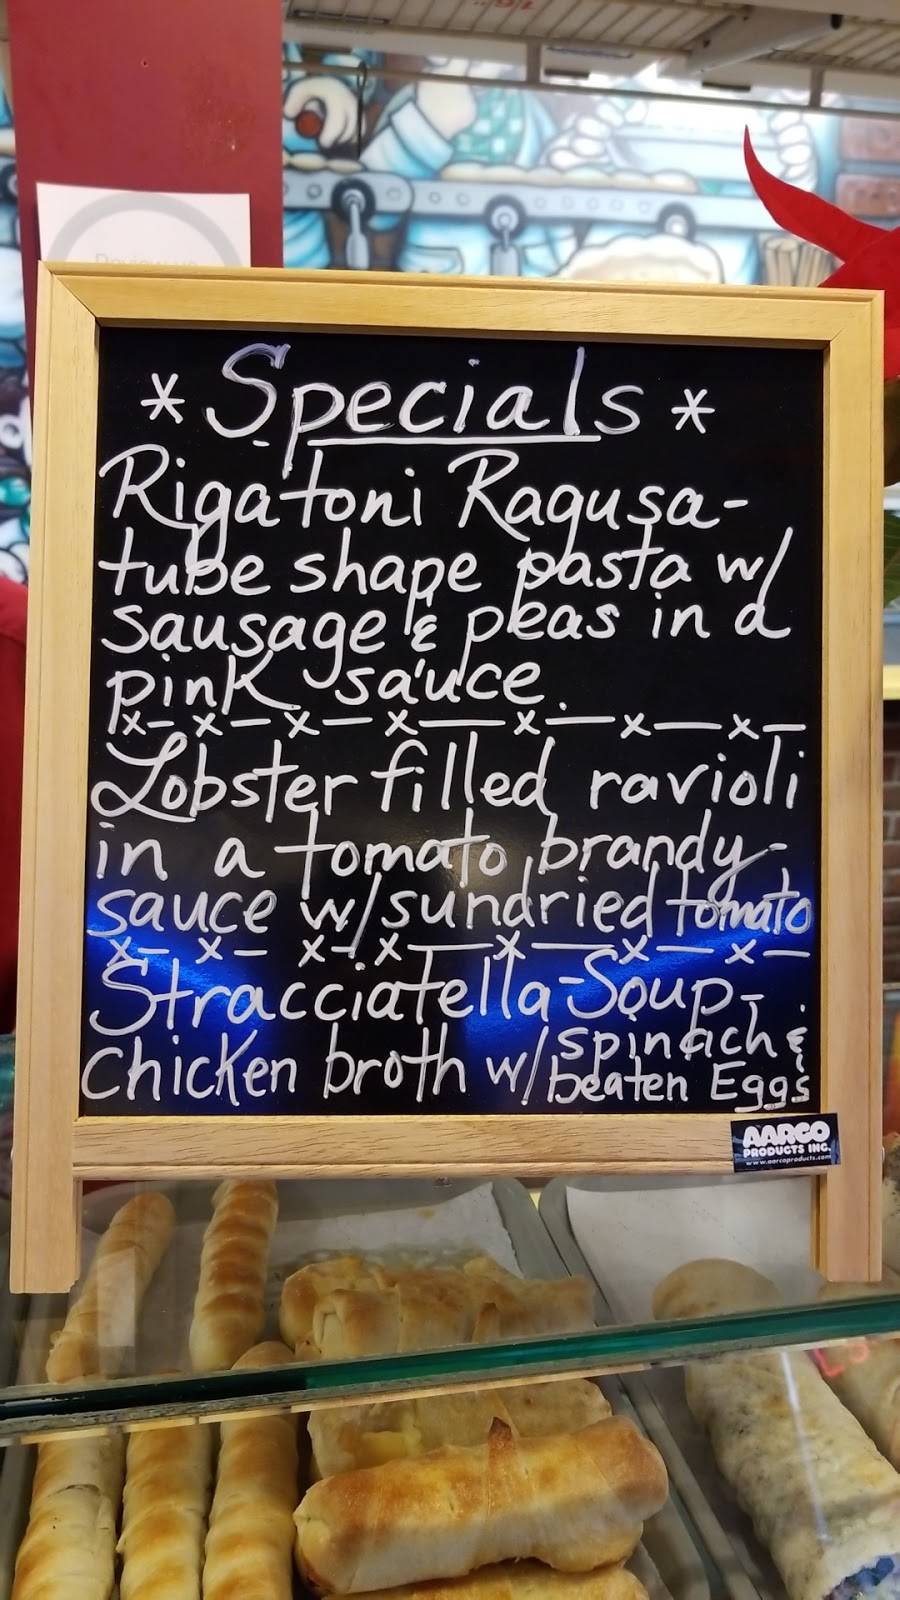 Review us
* Specials *
Rigatoni Ragusa-
tube shape pasta w/
sausage & peas in a
pink sauce.
x - x - x - x - x - x - x -
Lobster filled ravioli
in a tomato brandy-
sauce w/sundried tomato
x - x - x - x - x - x - x -
Stracciatella-Soup-
Chicken broth w/spinach &
beaten Eggs
AARCO
PRODUCTS INC.
www.aarcoproducts.com